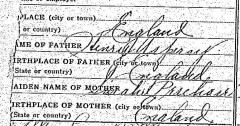 PLACE (city or town) England
or country)
AME OF FATHER Henry
IRTHPLACE OF FATHER (city or town)
(State or country) England.
AIDEN NAME OF MOTHER Sarah
IRTHPLACE OF MOTHER (city or town)
(State or country) England.